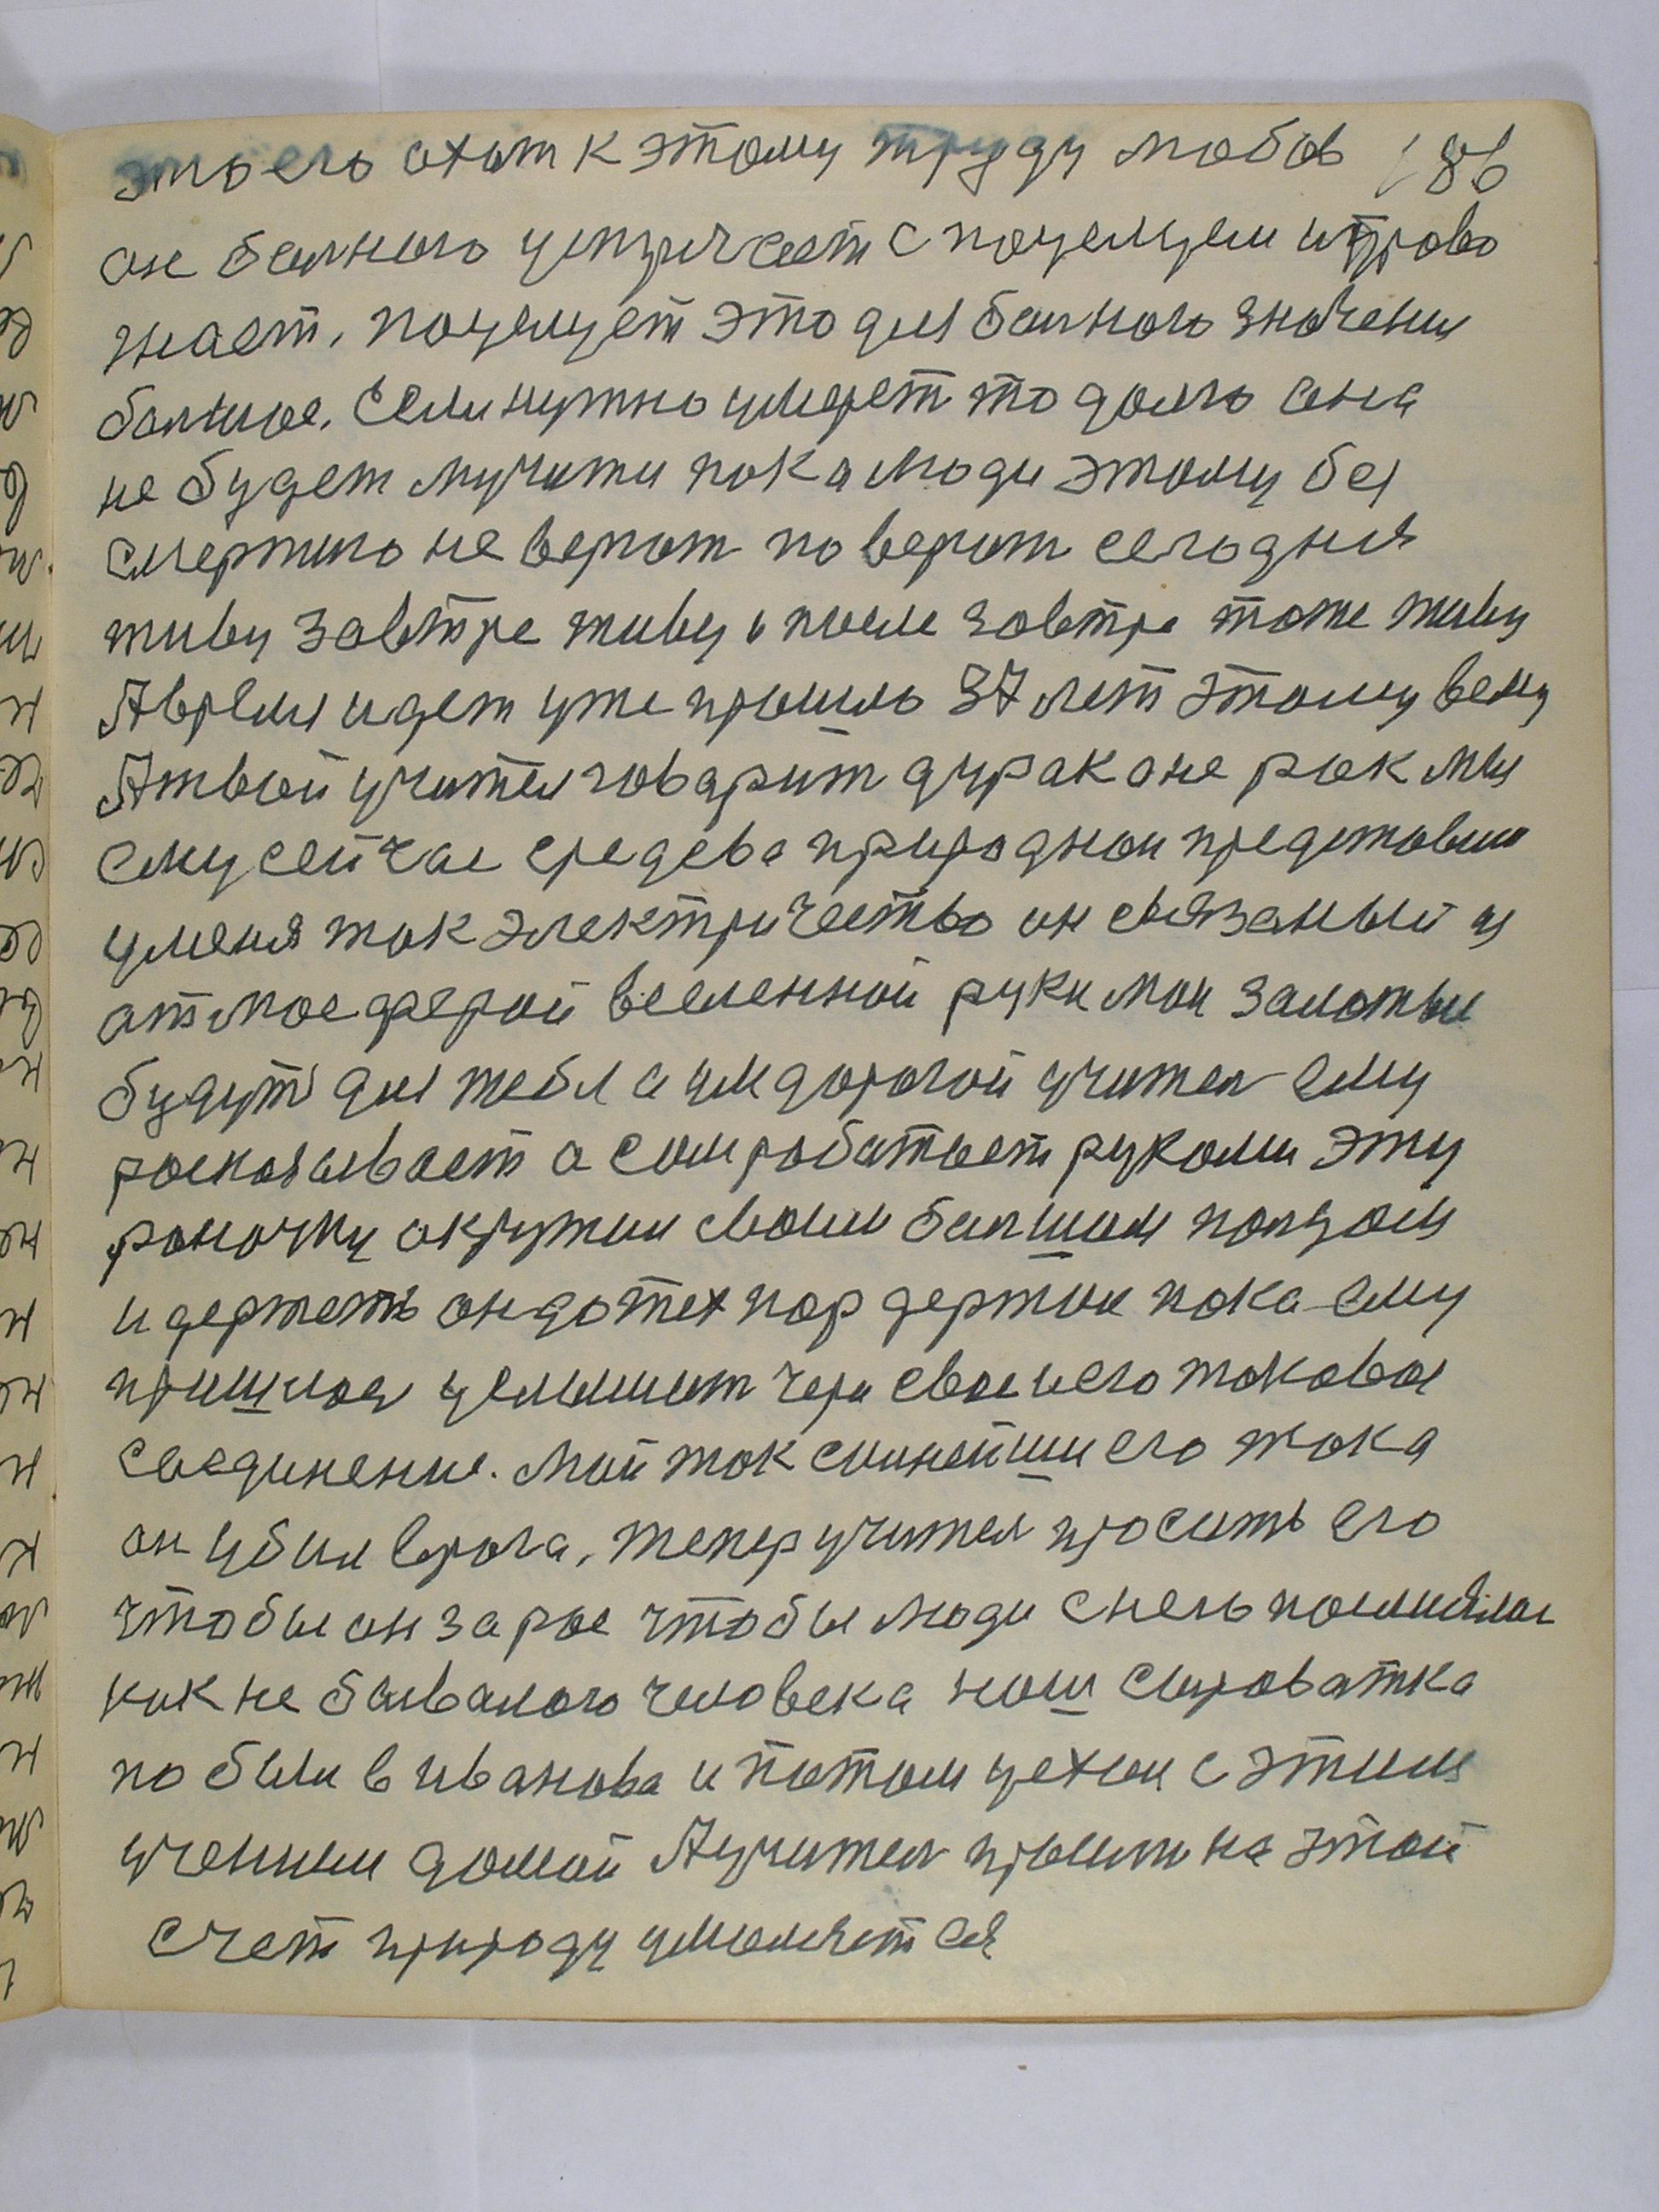 это его охот к этому труду любов 186
он балного устричает с поцелуем и прово
жает, поцелует это для балного значения
балшое. Если нужно умерет то долго она
не будет мучити пока люди этому без
смертию не верют поверют сегодня
живу завтре живу и после завтре тоже живу
А время идет уже прошло 37 лет этому веку
А твой учител говарит дурак оне рак мы
ему сейчас средсва природнои представим
уменя ток электричество он связаный из
атмосферой вселенной руки мои залотые
будут для тебя а им дорогой учител ему
росказывает а сам работает руками эту
раночку окружил своим балшим палцом
и держеть он до тех пор держил пока ему
пришлос услышит через свое и его токовое
соединение. Мой ток силнейший его тока
он убил врага, тепер учител просить его
чтобы он зарос чтобы люди с него посмиялис
как не бывалого человека наш Сыроватка
побыли в Иванова и потом уехал с этим
учением домой А учител прошли на этой
счет природу умоляется